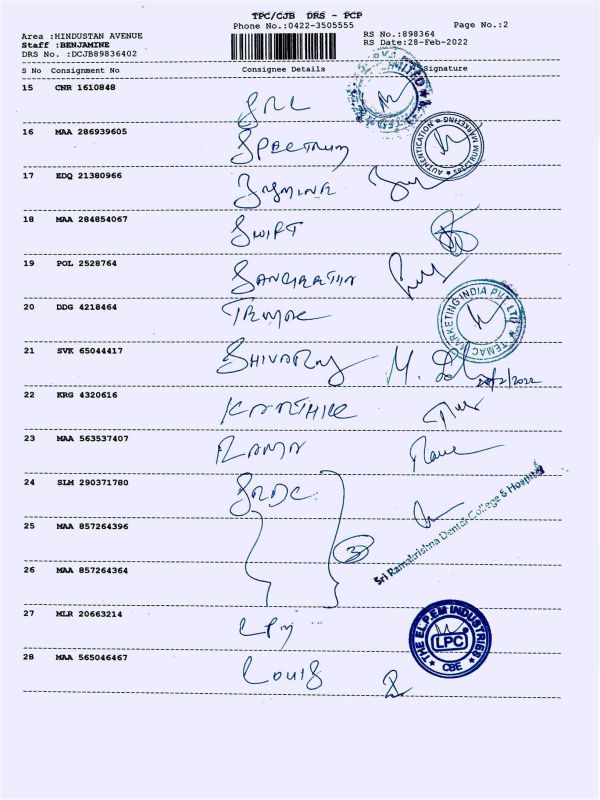 TPC/CJB DRS - PCP
Phone No.:0422-3505555 Page No.:2
Area :HINDUSTAN AVENUE RS No.:898364
Staff :BENJAMINE RS Date:28-Feb-2022
DRS No. :DCJB89836402
S No Consignment No Consignee Details Signature
15 CNR 1610848 SRL
16 MAA 286939605 Spectrum
AUTHENTICATION
17 EDQ 21380966
18 MAA 284854067 Swift
19 POL 2528764
20 DDG 4218464
TEMAC MARKETING INDIA PVT. LTD
21 SVK 65044417 Shivaraj M. 28/2/2022
22 KRG 4320616 Karthik
23 MAA 563537407 Rama
24 SLM 290371780 SRDC
Sri Ramakrishna Dental College & Hospital
25 MAA 857264396 3
26 MAA 857264364
27 MLR 20663214 LPM
THE EL.P.EM INDUSTRIES
LPC
CBE
28 MAA 565046467 Louis